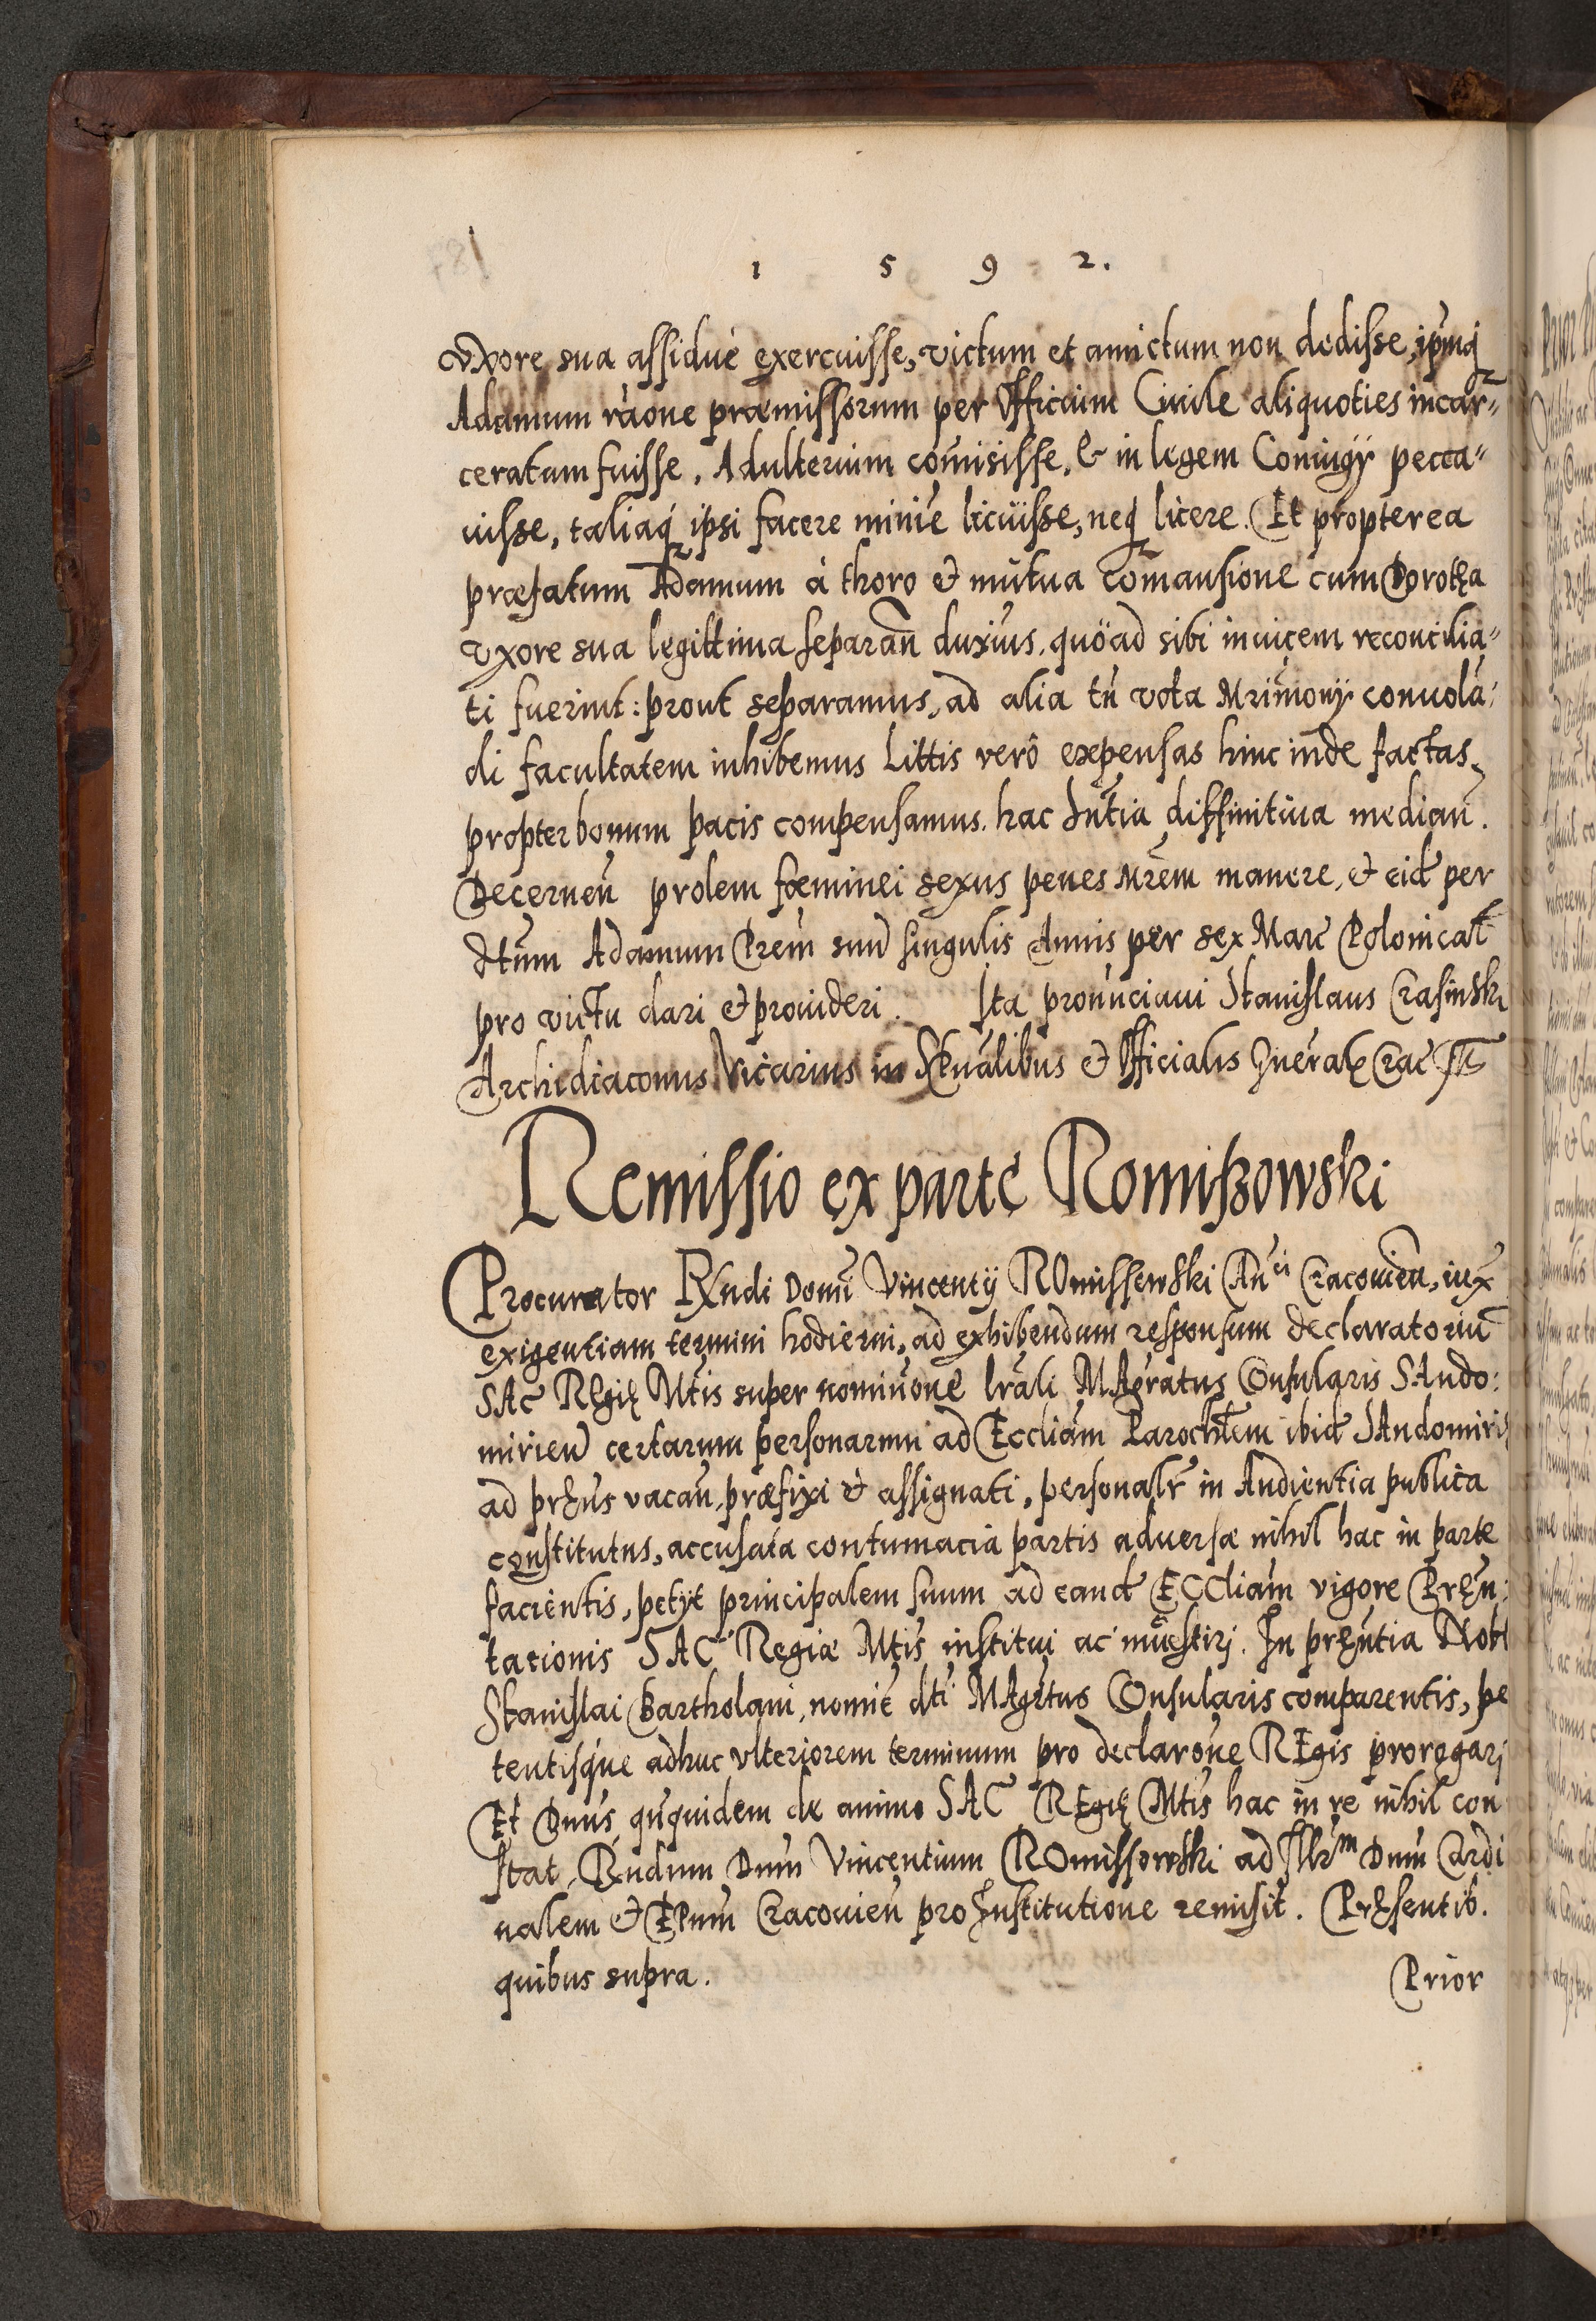 1 5 9 2.
vxore sua assiduè exercuisse, victum et amictum non dedisse, ipmq
Adamum rãone præmissorum per Officium Ciuile aliquoties incar=
ceratum fuisse. Adulterium com̃isisse, & in legem Coniugÿ pecca=
uisse, taliaq ipsi facere minie licuisse, neq licere. Et propterea
præfatum Adamum à thoro et mutua com̃ansione cum Dorothea
vxore sua legittima separañ duxius. quoad sibi inuicem reconcilia=
ti fuerint: prout separamus, ad alia tñ vota Mrimonÿ conuolã=
di facultatem inhibemus Littis verô expensas hinc inde factas,
propter bonum pacis compensamus. hac Sñtia diffinitiua mediañ.
Decerneñ prolem fœminei sexus penes Mrẽm manere, et eid per
dtum Adamum Prẽm suũ singulis Annis per sex Marc Polonical
pro victu dari et prouideri. Ita pronunciaui Stanislaus Crasinski
Archidiaconus Vicarius in Spũalibus et Officialis Gñeralꝭ Crac
Remissio ex parte Romiszowski
Procurator Rndi Domi Vincentÿ ROmissewski Cañci Cracouieñ, iux
exigentiam termini hodierni, ad exhibendum responsum declaratoriũ
SAC REgię Mtis super nominõne lrãli MAgratus COnsularis SAndo:
mirieñ certarum personarum ad Eccliam Parochlem ibid SAndomirie
ad pręns vacañ, præfixi et assignati, personalr in Audientia publica
constitutus, accusata contumacia partis aduersæ nihil hac in parte
facientis, petÿt principalem suum ad eand ECCliam vigore Pręn:
tationis SAC Regiæ Mtis institui ac inuestiri. In pręntia Nobi
Stanislai Bartholani, nomie dti MAgrtus COnsularis comparentis, pe
tentisque adhuc vlteriorem terminum pro declarõne REgis prorogari
Et Dnus ququidem de animo SAC REgię Mtis hac in re nihil con
stat, Rndum Dnum Vincentium ROmissowski ad Illrm Dnum Cardi
nalem et EPum Cracouieñ pro Institutione remisit. PręSentib.
quibus supra.
Prior